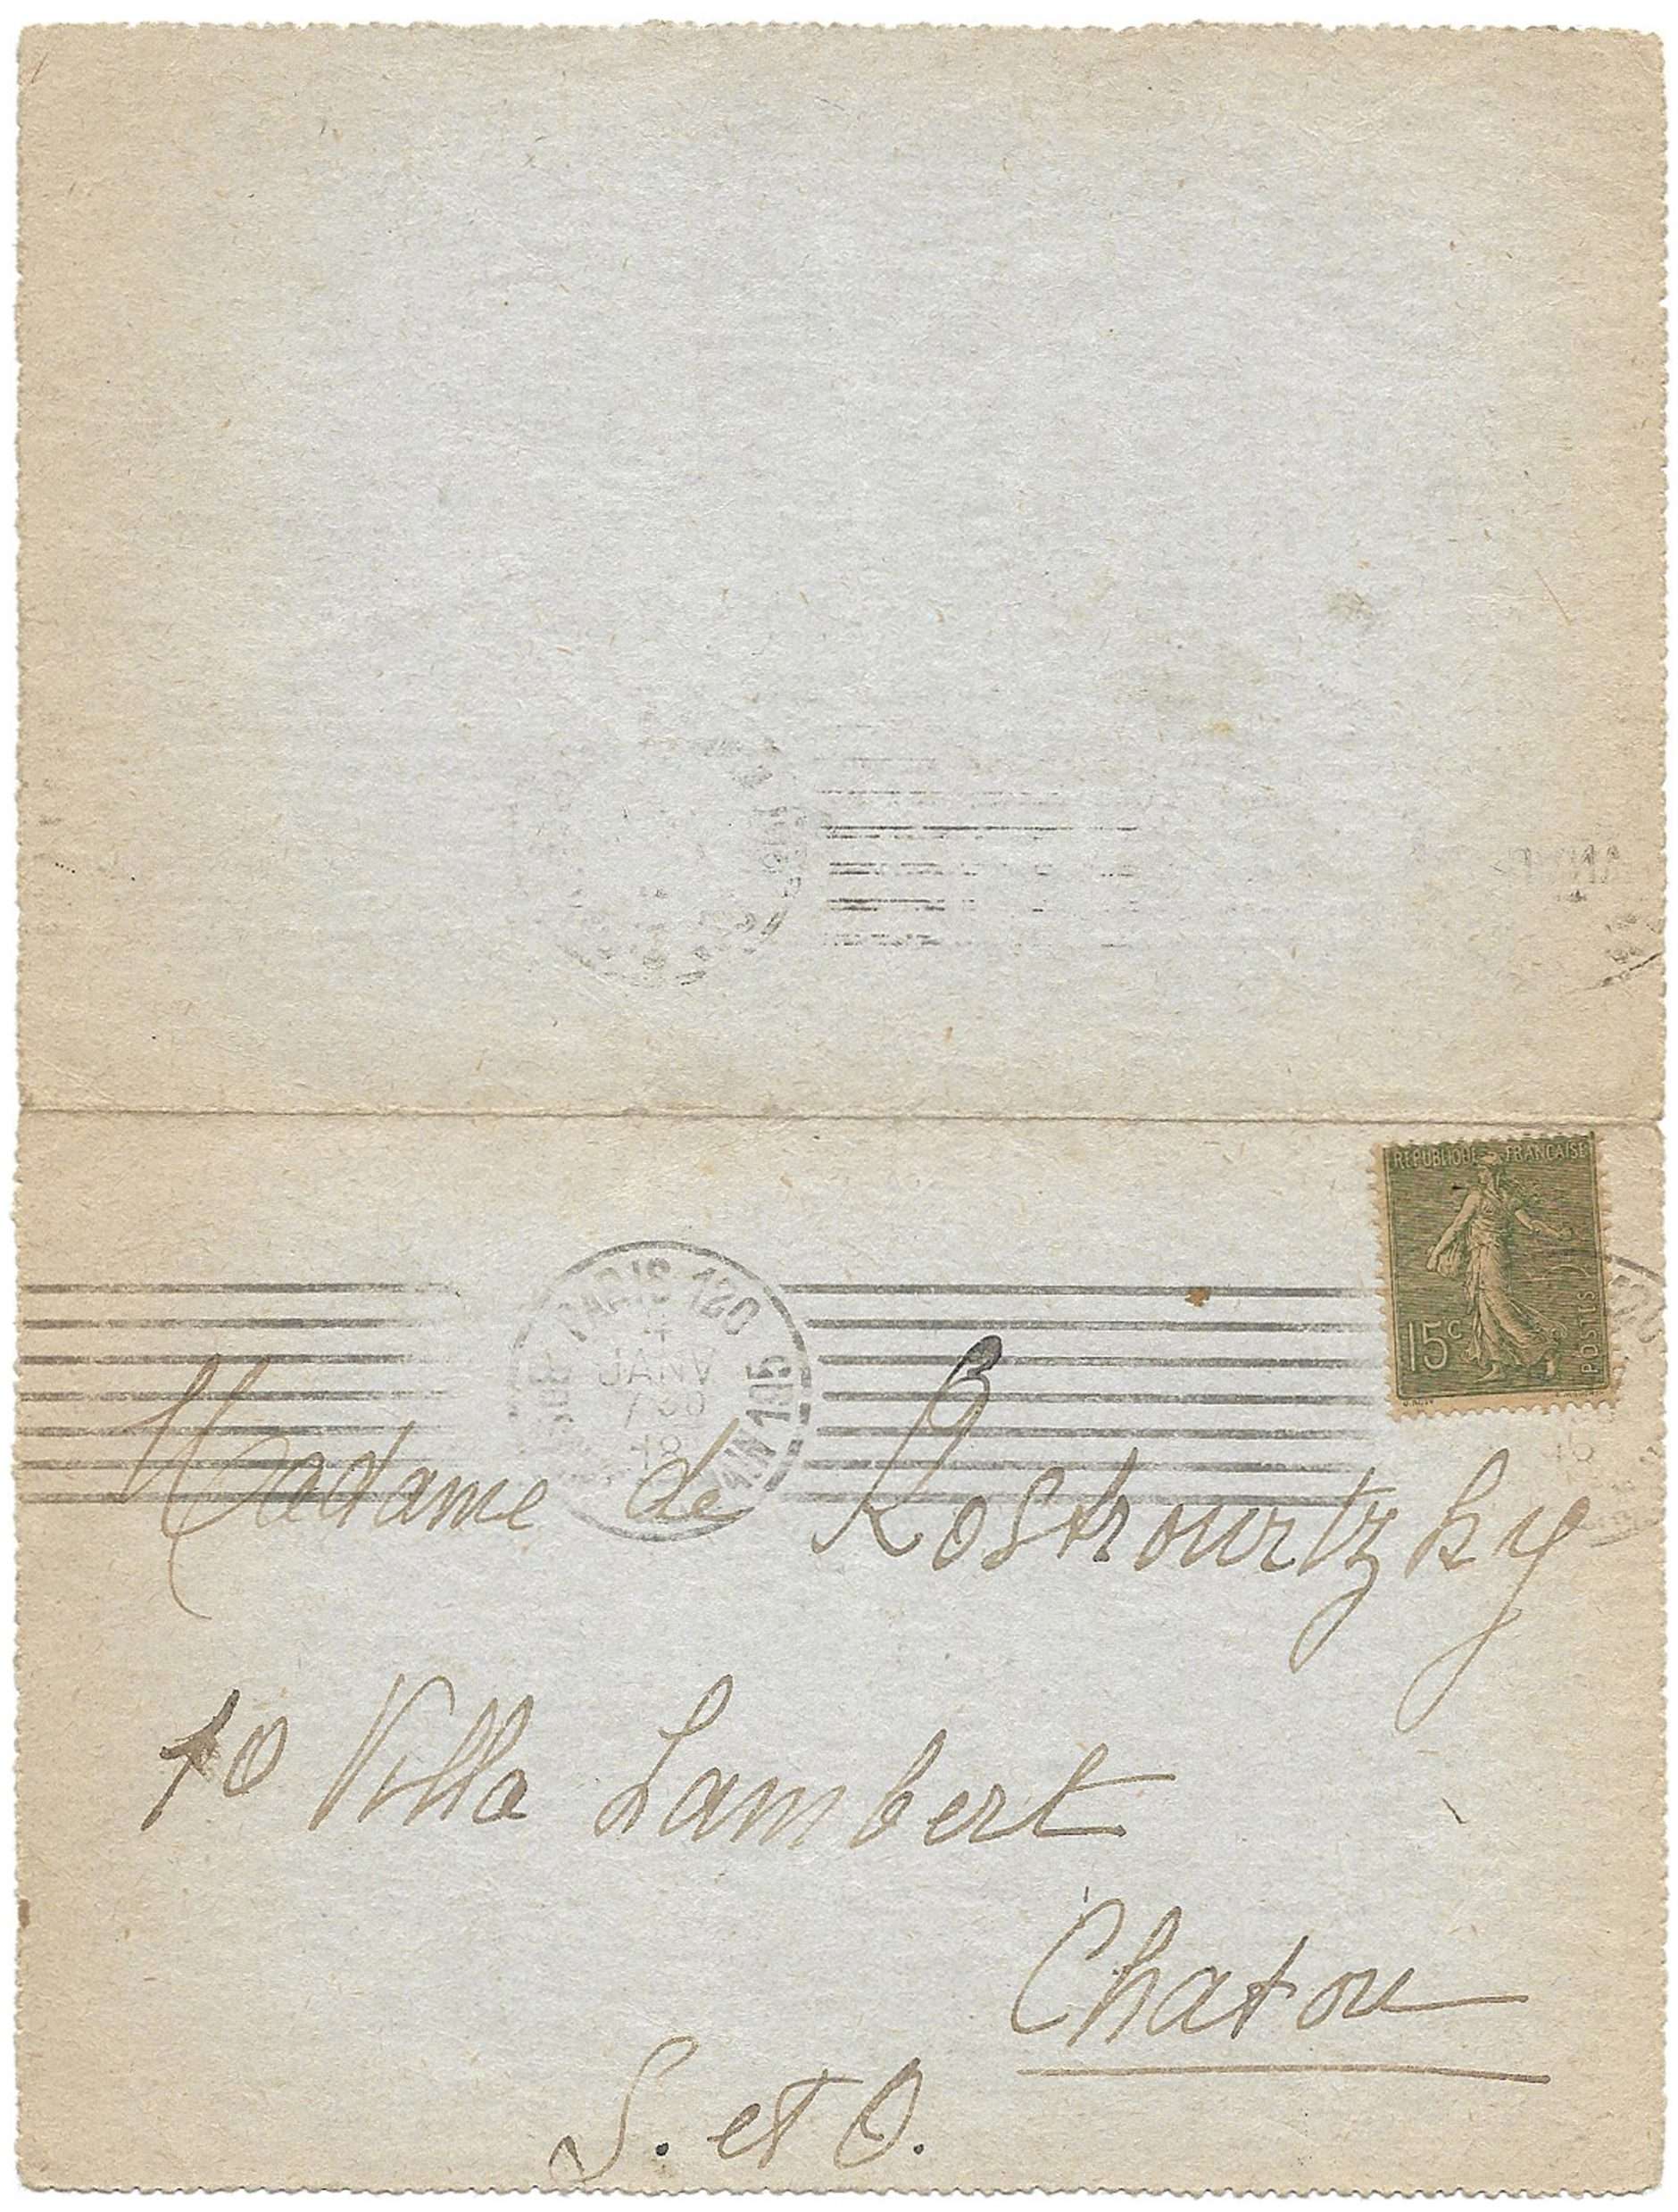 REPUBLIQUE FRANCAISE
15c
POSTES
PARIS 120
4
JANV
18
Madame de Rostrourtzky
10 Villa Lambert
Chatou
S. et O.